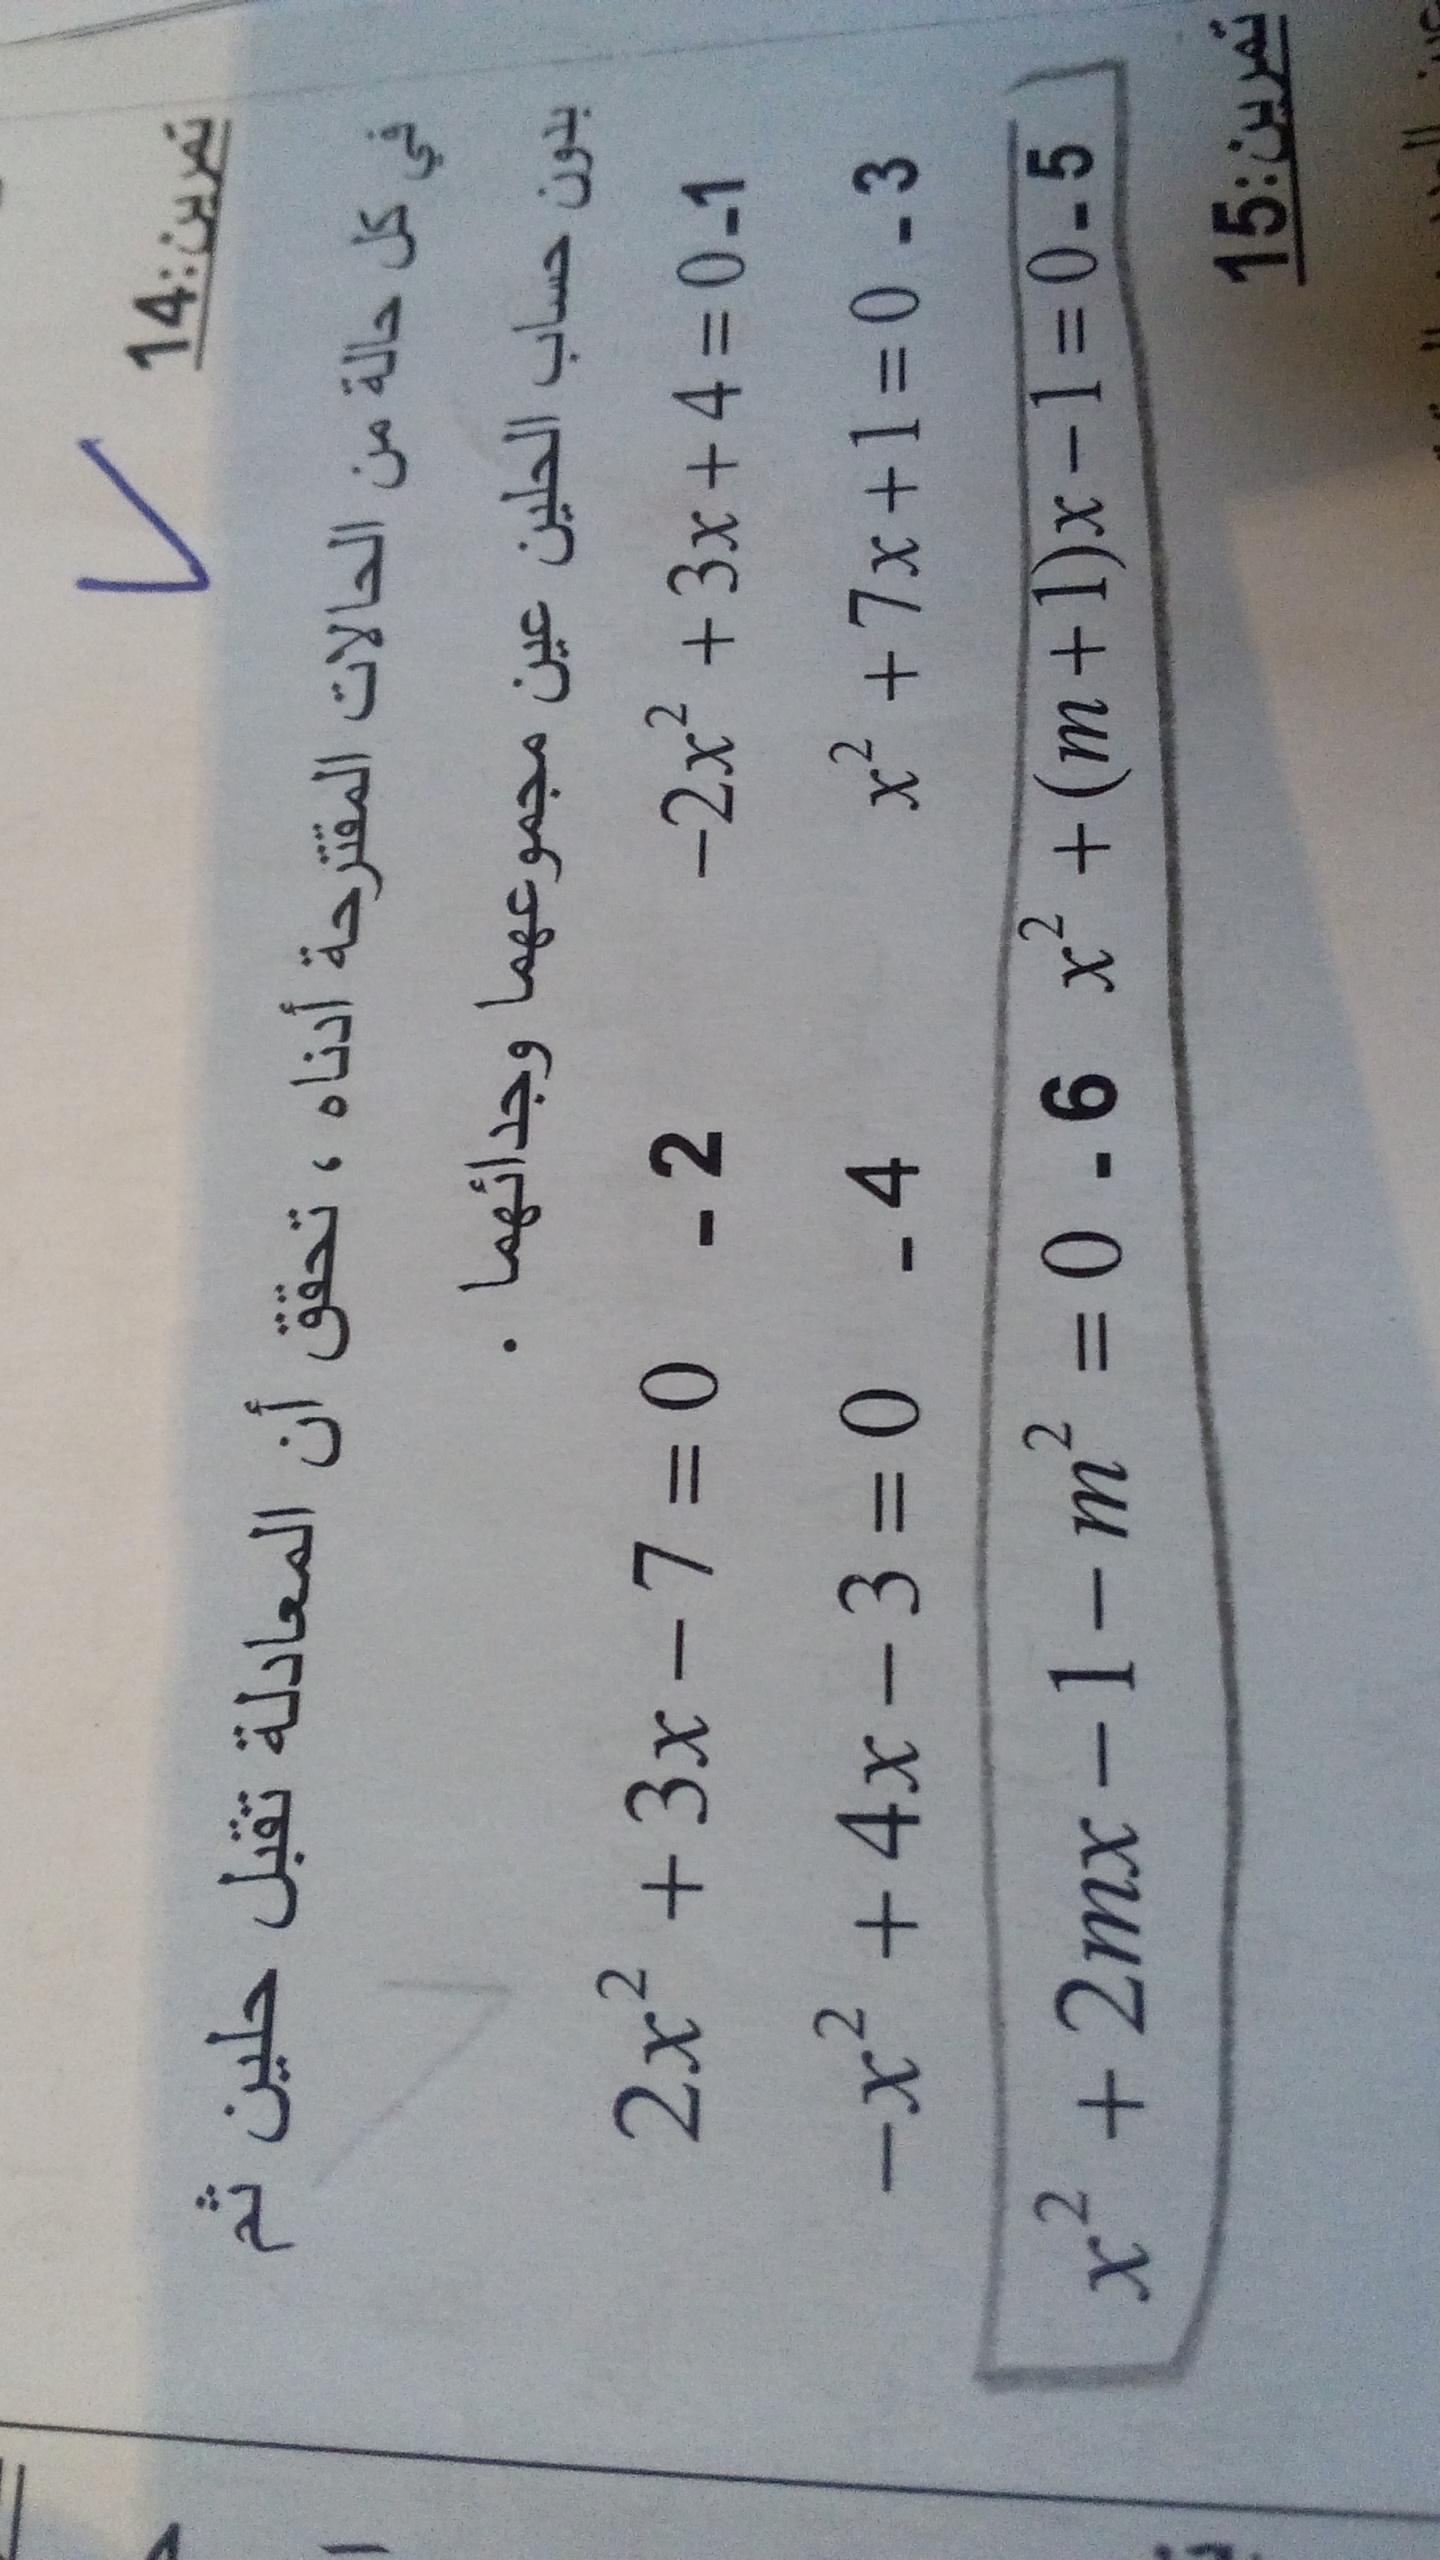 تمرين:14
في كل حالة من الحالات المقترحة أدناه ، تحقق أن المعادلة تقبل حلين ثم
بدون حساب الحلين عين مجموعهما وجدائهما .
2x² + 3x − 7 = 0 - 2 −2x² + 3x + 4 = 0 -1
−x² + 4x − 3 = 0 - 4 x² + 7x + 1 = 0 - 3
x² + 2mx − 1 − m² = 0 - 6 x² + (m + 1)x − 1 = 0 - 5
تمرين:15